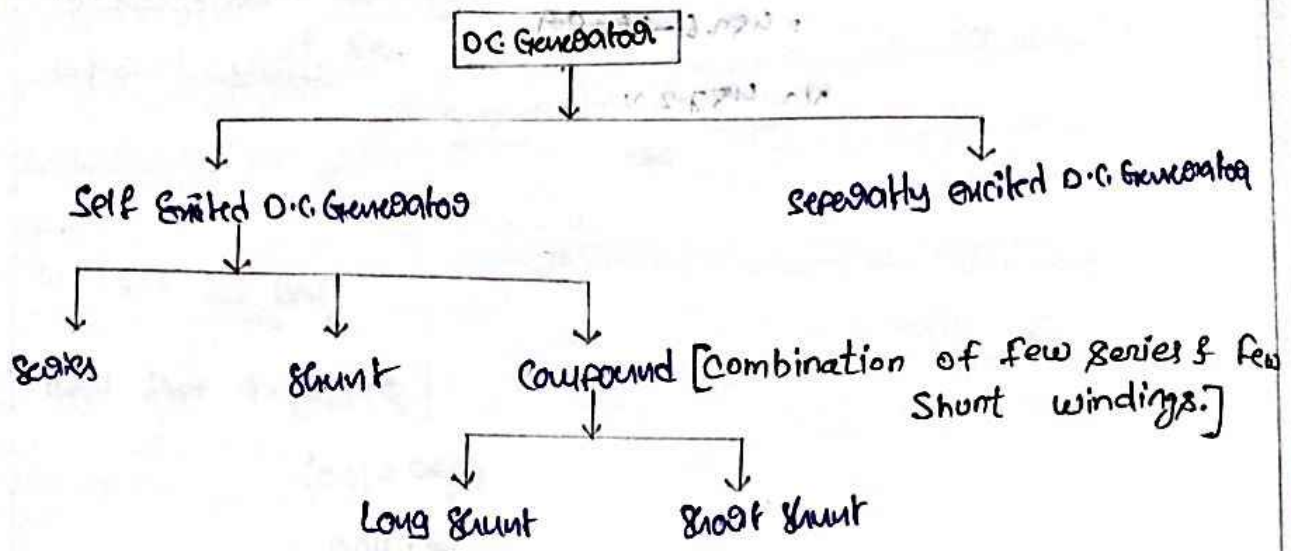 D.C. Generator
Self Exited D.C. Generator
Seperatly excited D.C. Generator
Series
Shunt
Compound [Combination of few series & few
Shunt windings.]
Long Shunt
Short Shunt